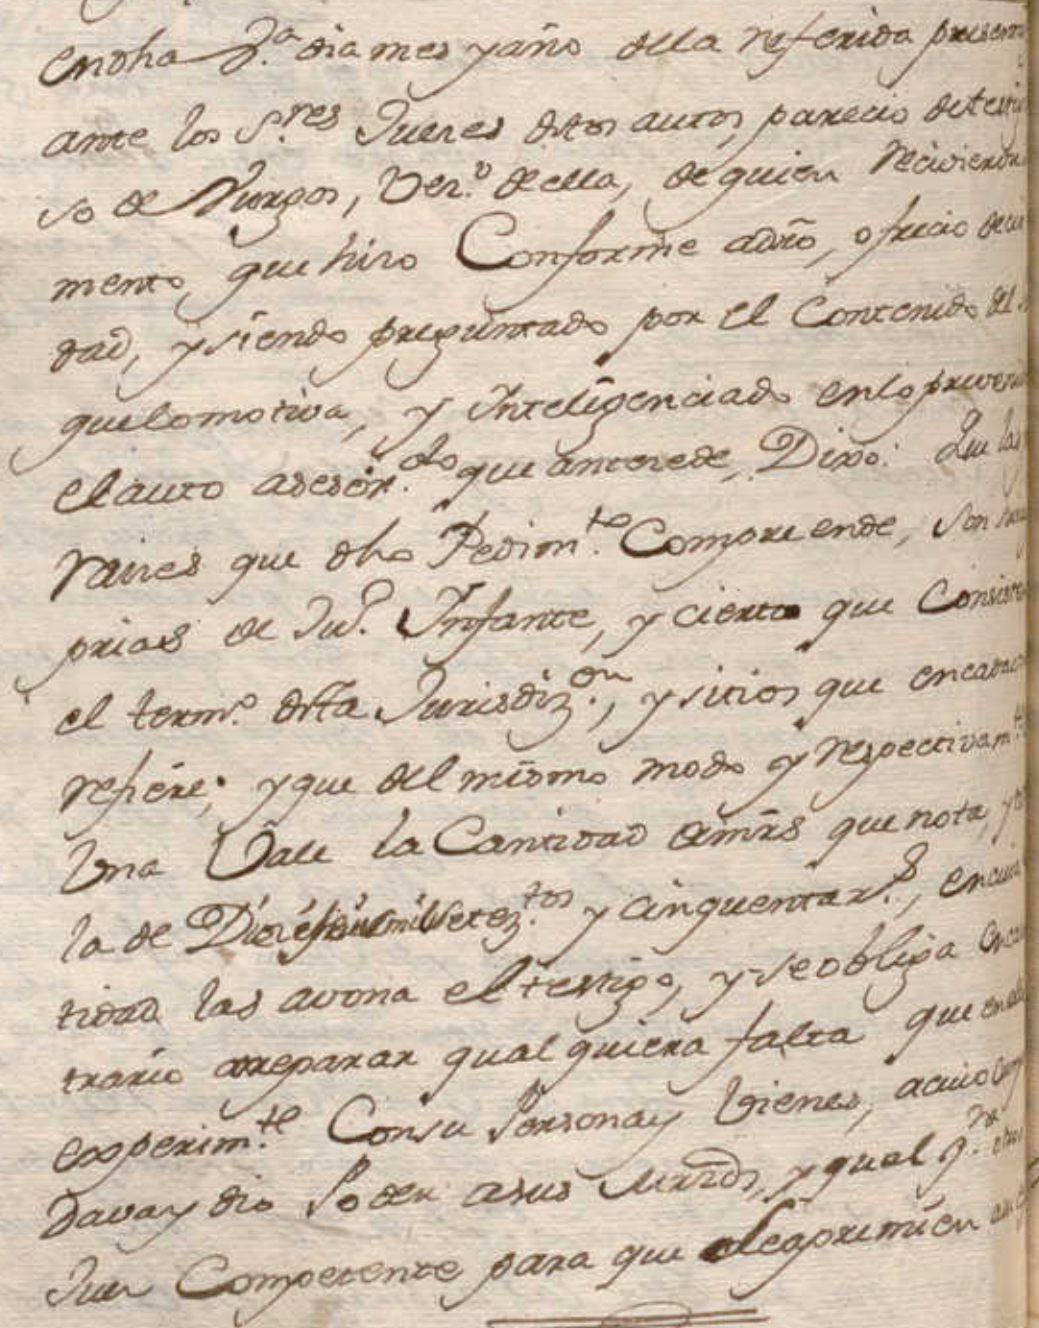 endha V.ª dia mes y año della referida presente
ante los S.res Jueces dstos autos, parecio de testi
so de Burgos, Vez.º de ella, de quien recivieron
mento, que hizo Conforme a dr̃o, ofrecio decir
dad, y siendo preguntado por el Contenido del
que lo motiva, y Inteligenciado en lo preven
el auto asesor.do que antecede, Dixo: Que las
raizes que dho Pedim.to Compreende, son
prias de Ju.º Infante, y cierto que Consisten
el term.º dsta Jurisdiz.on, y sitios que en cada
refiere; y que del mismo modo y respectivam.te
Una Vale la Cantidad q̃ mr̃s que nota, y
la de Diez y seis mil Setez.tos y cinquenta r.s, en cuia
tidad las avona el testigo, y se obliga en
trario a reparar qual quiera falta que en
experim.te Con su Persona y Vienes, a cuio
dava y dio Poder a sus Mrzds, y qual q.ra otro
Juez Competente para que a ello le apremien